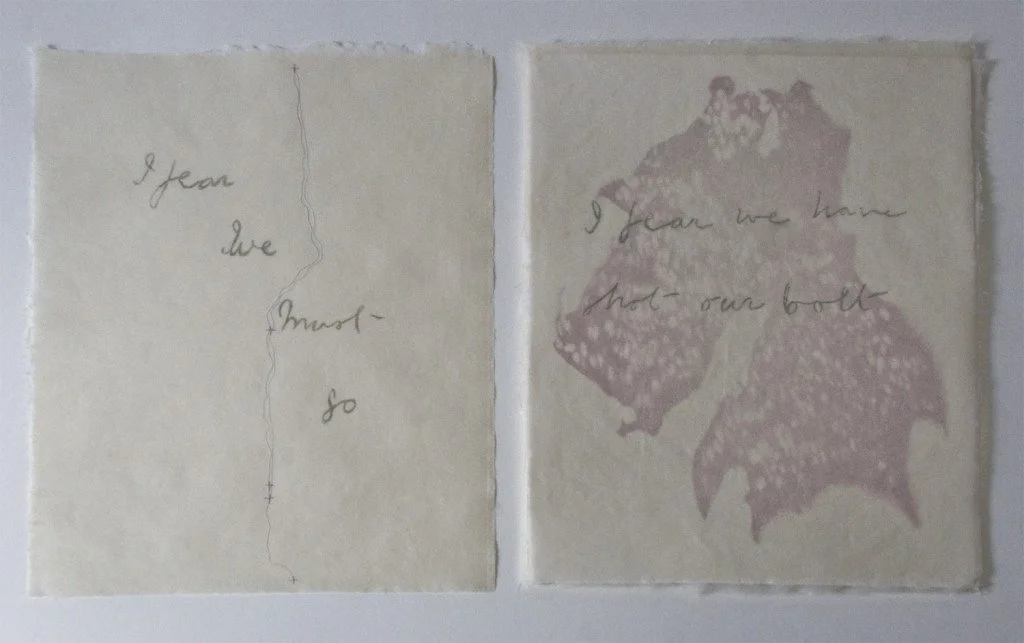 I fear
We
Must
go
I fear we have
shot our bolt